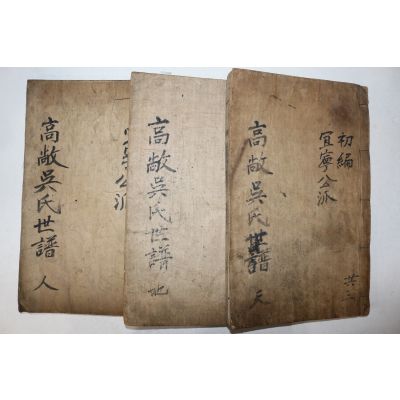 初編
宜寧公派
高敞吳氏世譜 天
共三
高敞吳氏世譜 地
公派
高敞吳氏世譜 人